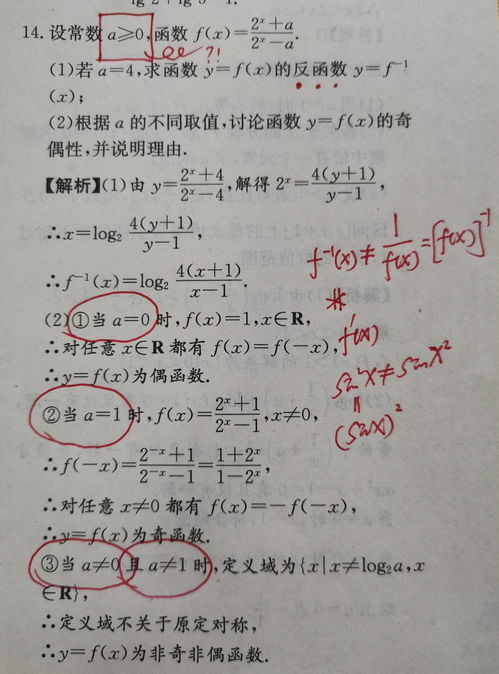 lg 2+lg 5=1.
14. 设常数 a≥0,函数 f(x)=\frac{2^x+a}{2^x-a}.
?!
(1)若 a=4,求函数 y=f(x)的反函数 y=f^{-1}
(x);
(2)根据 a 的不同取值,讨论函数 y=f(x)的奇
偶性,并说明理由.
【解析】(1)由 y=\frac{2^x+4}{2^x-4},解得 2^x=\frac{4(y+1)}{y-1},
∴x=log_2 \frac{4(y+1)}{y-1},
f^{-1}(x)≠\frac{1}{f(x)}=[f(x)]^{-1}
∴f^{-1}(x)=log_2 \frac{4(x+1)}{x-1}.
(2)①当 a=0 时,f(x)=1,x∈R,
f'(x)
∴对任意 x∈R 都有 f(x)=f(-x),
∴y=f(x)为偶函数.
sin^2x≠sinx^2
(sinx)^2
②当 a=1 时,f(x)=\frac{2^x+1}{2^x-1},x≠0,
∴f(-x)=\frac{2^{-x}+1}{2^{-x}-1}=\frac{1+2^x}{1-2^x},
∴对任意 x≠0 都有 f(x)=-f(-x),
∴y=f(x)为奇函数.
③当 a≠0 且 a≠1 时,定义域为{x|x≠log_2a,x
∈R},
∴定义域不关于原定对称,
∴y=f(x)为非奇非偶函数.